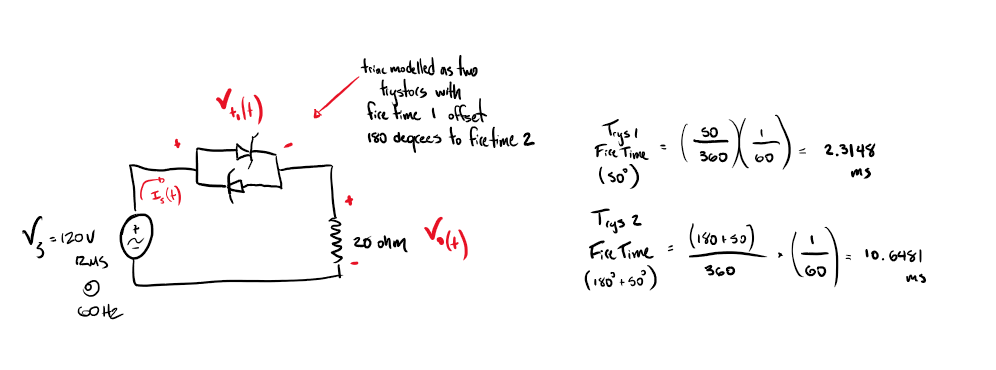 triac modelled as two
trystors with
fire time 1 offset
180 degrees to firetime 2
Vt₁(t)
+
-
Is(t)
+
Vs = 120V
RMS
@
60Hz
+
~
-
20 ohm
Vo(t)
-
Trys 1
Fire Time
(50°)
= (50/360)(1/60) = 2.3148
ms
Trys 2
Fire Time
(180°+50°)
= (180+50)/360 · (1/60) = 10.6481
ms